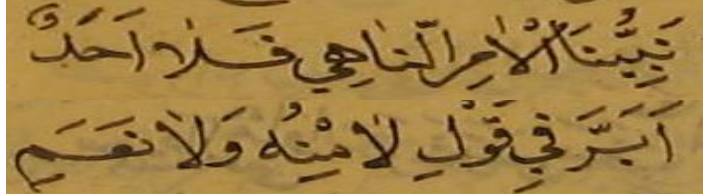 نَبِيُّنَا الْاٰمِرُ النَّاهِي فَلَا اَحَدٌ
اَبَرَّ فِي قَوْلِ لَا مِنْهُ وَلَا نَعَمِ